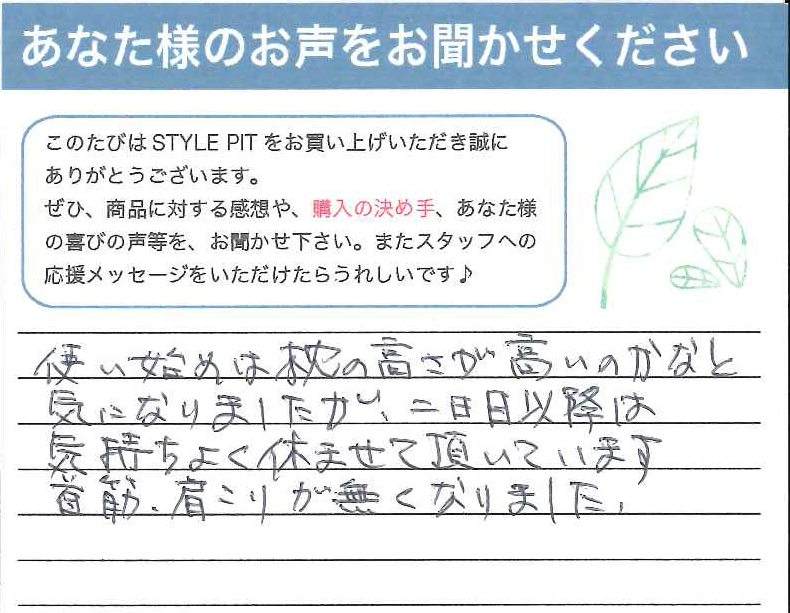 あなた様のお声をお聞かせください
このたびは STYLE PIT をお買い上げいただき誠に
ありがとうございます。
ぜひ、商品に対する感想や、購入の決め手、あなた様
の喜びの声等を、お聞かせ下さい。またスタッフへの
応援メッセージをいただけたらうれしいです♪
使い始めは枕の高さが高いのかなと
気になりましたが、二日目以降は
気持ちよく休ませて頂いています
首筋、肩こりが無くなりました。